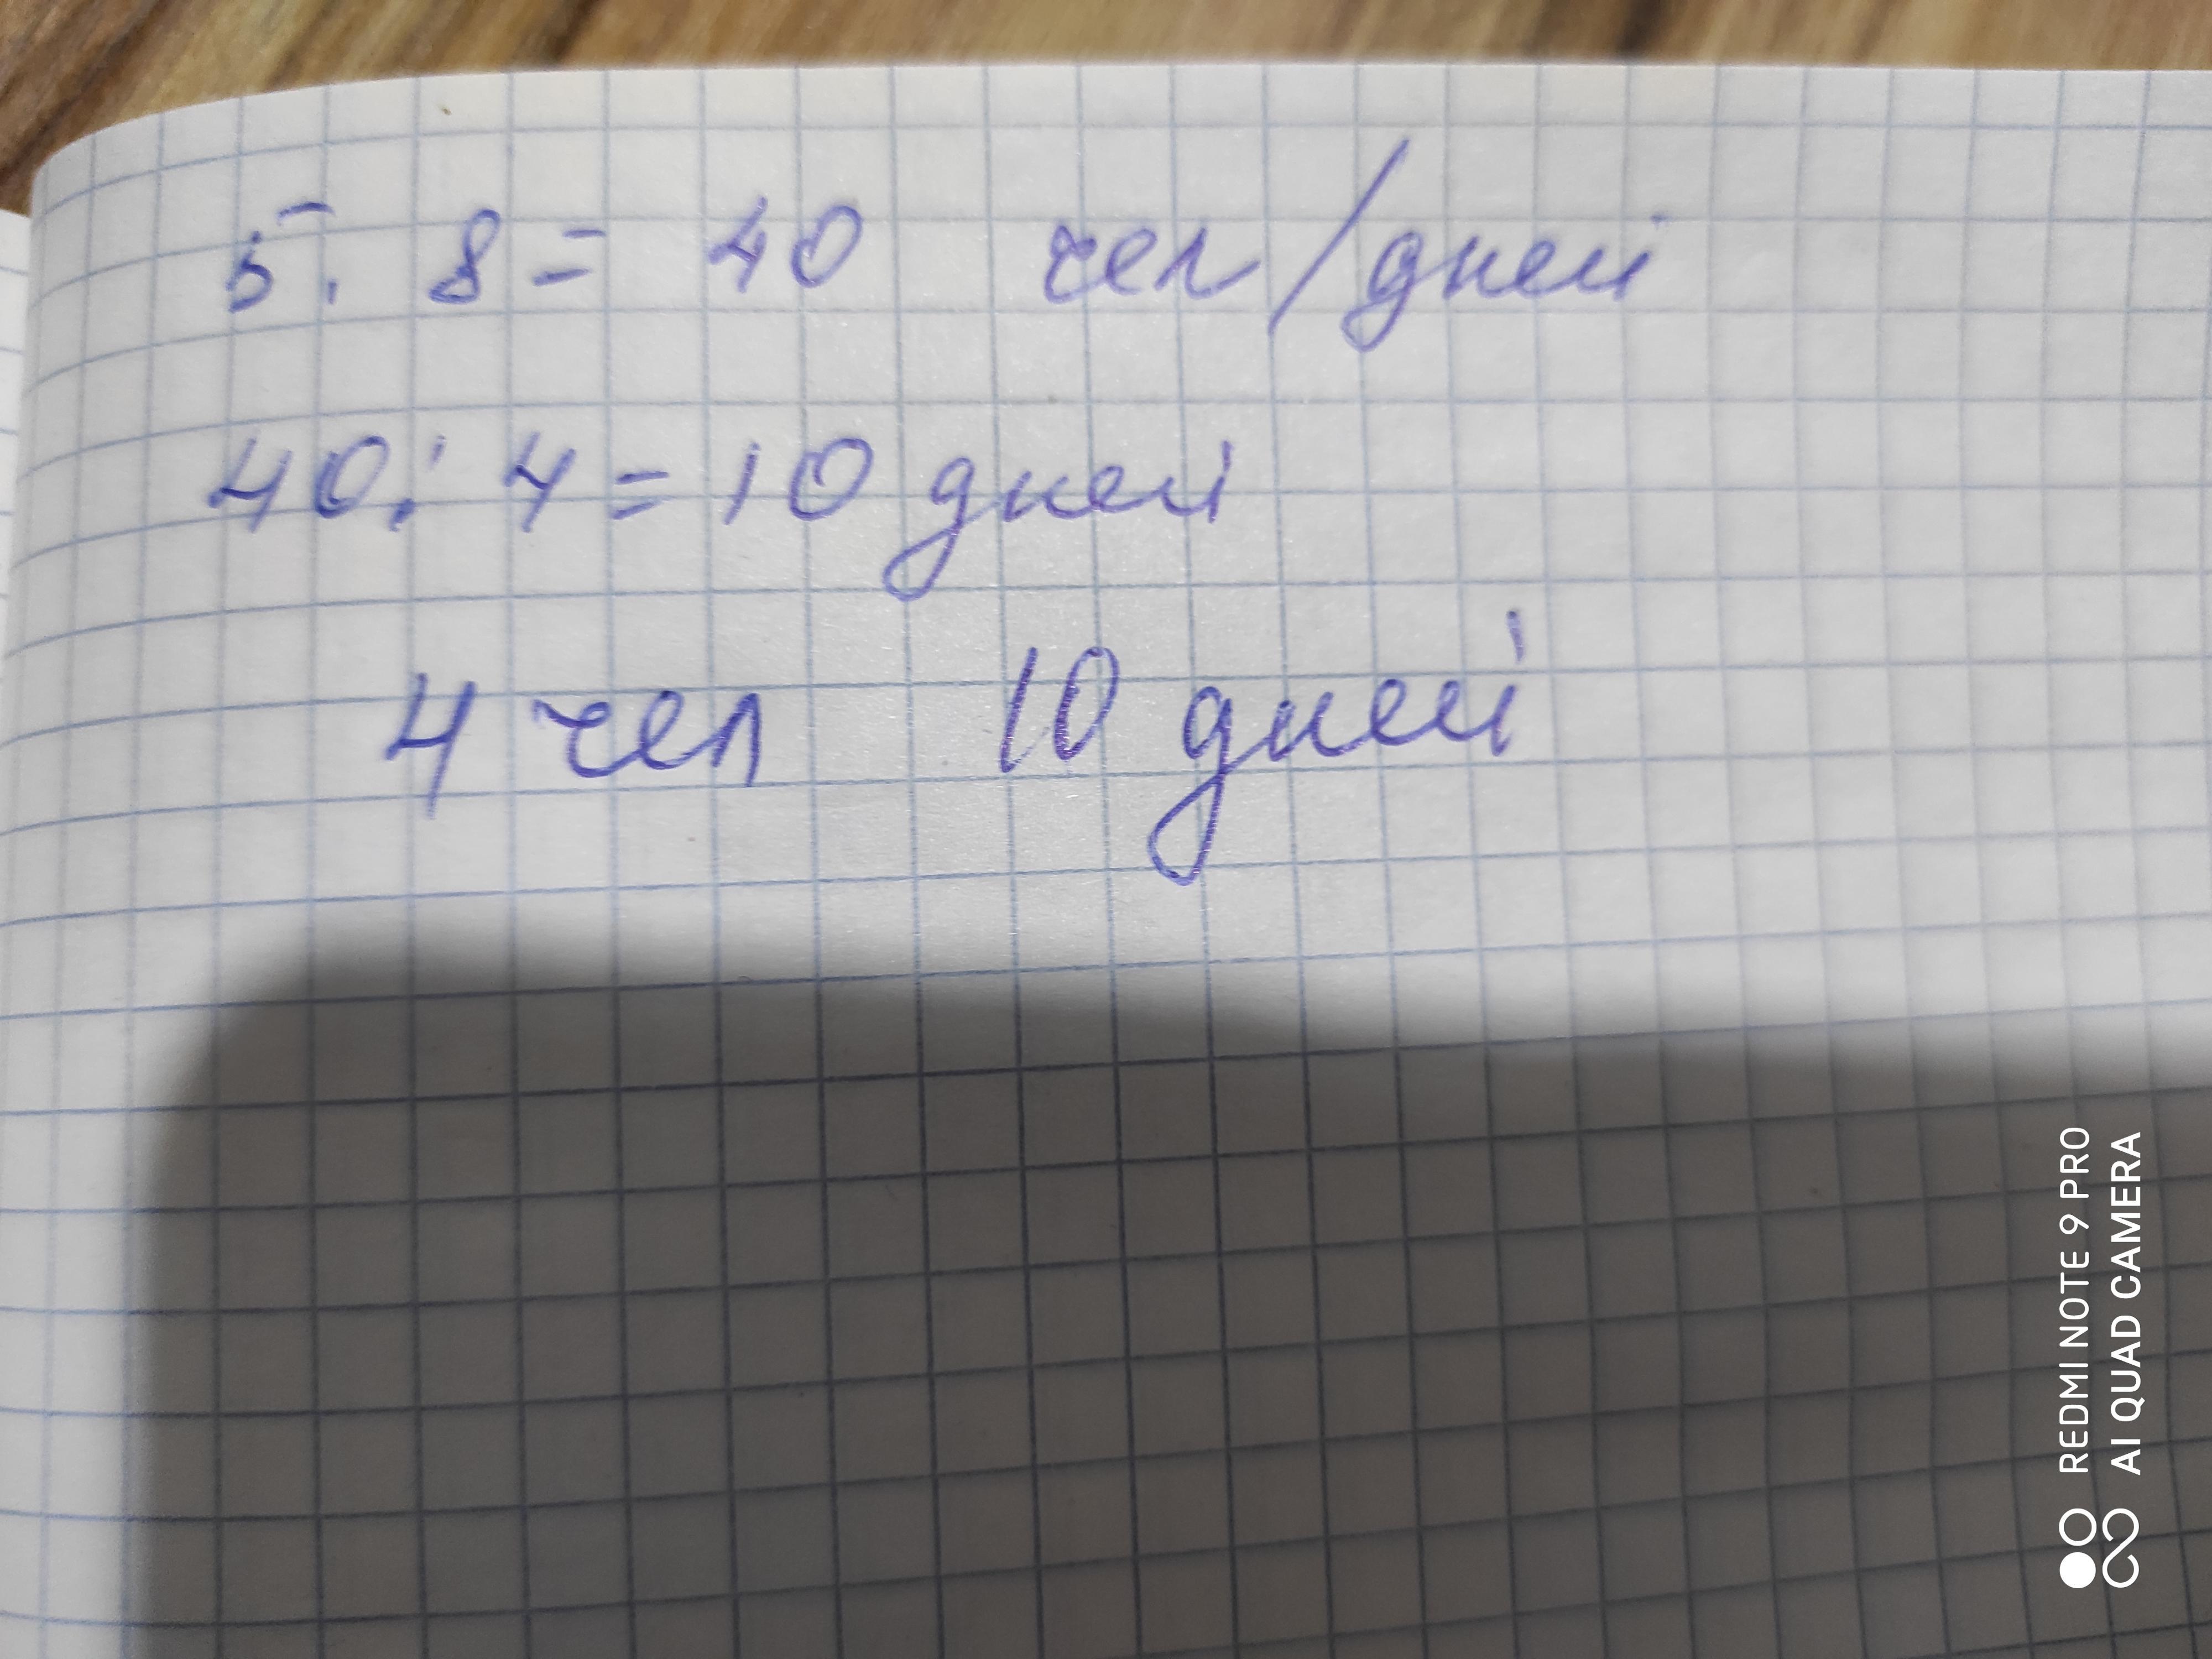 5 · 8 = 40 чел/дней
40 : 4 = 10 дней
4 чел 10 дней
REDMI NOTE 9 PRO
AI QUAD CAMERA